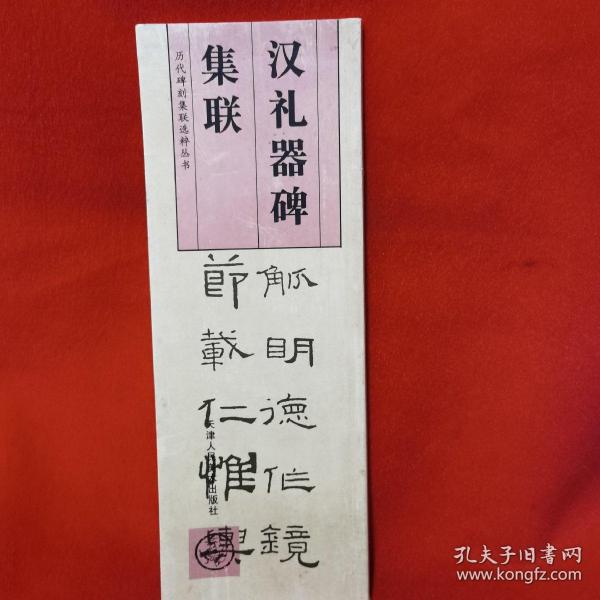 汉礼器碑
集联
历代碑刻集联选粹丛书
觚明德作鏡
節載仁惟輿
天津人民美术出版社
孔夫子旧书网
www.kongfz.com